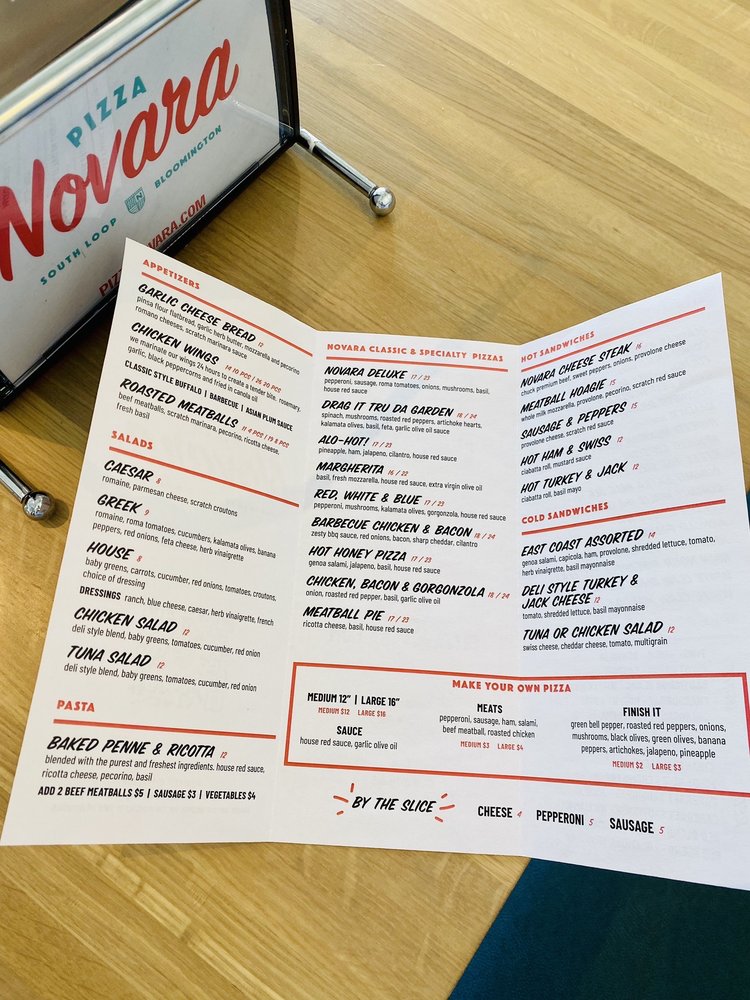 PIZZA
Novara
SOUTH LOOP BLOOMINGTON
VARA.COM
APPETIZERS
GARLIC CHEESE BREAD 12
pinsa flour flatbread, garlic herb butter, mozzarella and pecorino
romano cheeses, scratch marinara sauce
CHICKEN WINGS 14 10 PCS / 26 20 PCS
we marinate our wings 24 hours to create a tender bite. rosemary,
garlic, black peppercorns and fried in canola oil
CLASSIC STYLE BUFFALO | BARBECUE | ASIAN PLUM SAUCE
ROASTED MEATBALLS 11 4 PCS / 19 8 PCS
beef meatballs, scratch marinara, pecorino, ricotta cheese,
fresh basil
SALADS
CAESAR 8
romaine, parmesan cheese, scratch croutons
GREEK 9
romaine, roma tomatoes, cucumbers, kalamata olives, banana
peppers, red onions, feta cheese, herb vinaigrette
HOUSE 8
baby greens, carrots, cucumber, red onions, tomatoes, croutons,
choice of dressing
DRESSINGS ranch, blue cheese, caesar, herb vinaigrette, french
CHICKEN SALAD 12
deli style blend, baby greens, tomatoes, cucumber, red onion
TUNA SALAD 12
deli style blend, baby greens, tomatoes, cucumber, red onion
PASTA
BAKED PENNE & RICOTTA 12
blended with the purest and freshest ingredients. house red sauce,
ricotta cheese, pecorino, basil
ADD 2 BEEF MEATBALLS $5 | SAUSAGE $3 | VEGETABLES $4
NOVARA CLASSIC & SPECIALTY PIZZAS
NOVARA DELUXE 17 / 23
pepperoni, sausage, roma tomatoes, onions, mushrooms, basil,
house red sauce
DRAG IT TRU DA GARDEN 18 / 24
spinach, mushrooms, roasted red peppers, artichoke hearts,
kalamata olives, basil, feta, garlic olive oil sauce
ALO-HOT! 17 / 23
pineapple, ham, jalapeno, cilantro, house red sauce
MARGHERITA 16 / 22
basil, fresh mozzarella, house red sauce, extra virgin olive oil
RED, WHITE & BLUE 17 / 23
pepperoni, mushrooms, kalamata olives, gorgonzola, house red sauce
BARBECUE CHICKEN & BACON 18 / 24
zesty bbq sauce, red onions, bacon, sharp cheddar, cilantro
HOT HONEY PIZZA 17 / 23
genoa salami, jalapeno, basil, house red sauce
CHICKEN, BACON & GORGONZOLA 18 / 24
onion, roasted red pepper, basil, garlic olive oil
MEATBALL PIE 17 / 23
ricotta cheese, basil, house red sauce
HOT SANDWICHES
NOVARA CHEESE STEAK 16
chuck premium beef, sweet peppers, onions, provolone cheese
MEATBALL HOAGIE 15
whole milk mozzarella, provolone, pecorino, scratch red sauce
SAUSAGE & PEPPERS 15
provolone cheese, scratch red sauce
HOT HAM & SWISS 12
ciabatta roll, mustard sauce
HOT TURKEY & JACK 12
ciabatta roll, basil mayo
COLD SANDWICHES
EAST COAST ASSORTED 14
genoa salami, capicola, ham, provolone, shredded lettuce, tomato,
herb vinaigrette, basil mayonnaise
DELI STYLE TURKEY &
JACK CHEESE 12
tomato, shredded lettuce, basil mayonnaise
TUNA OR CHICKEN SALAD 12
swiss cheese, cheddar cheese, tomato, multigrain
MAKE YOUR OWN PIZZA
MEDIUM 12" | LARGE 16"
MEDIUM $12 LARGE $16
SAUCE
house red sauce, garlic olive oil
MEATS
pepperoni, sausage, ham, salami,
beef meatball, roasted chicken
MEDIUM $3 LARGE $4
FINISH IT
green bell pepper, roasted red peppers, onions,
mushrooms, black olives, green olives, banana
peppers, artichokes, jalapeno, pineapple
MEDIUM $2 LARGE $3
BY THE SLICE
CHEESE 4 PEPPERONI 5 SAUSAGE 5